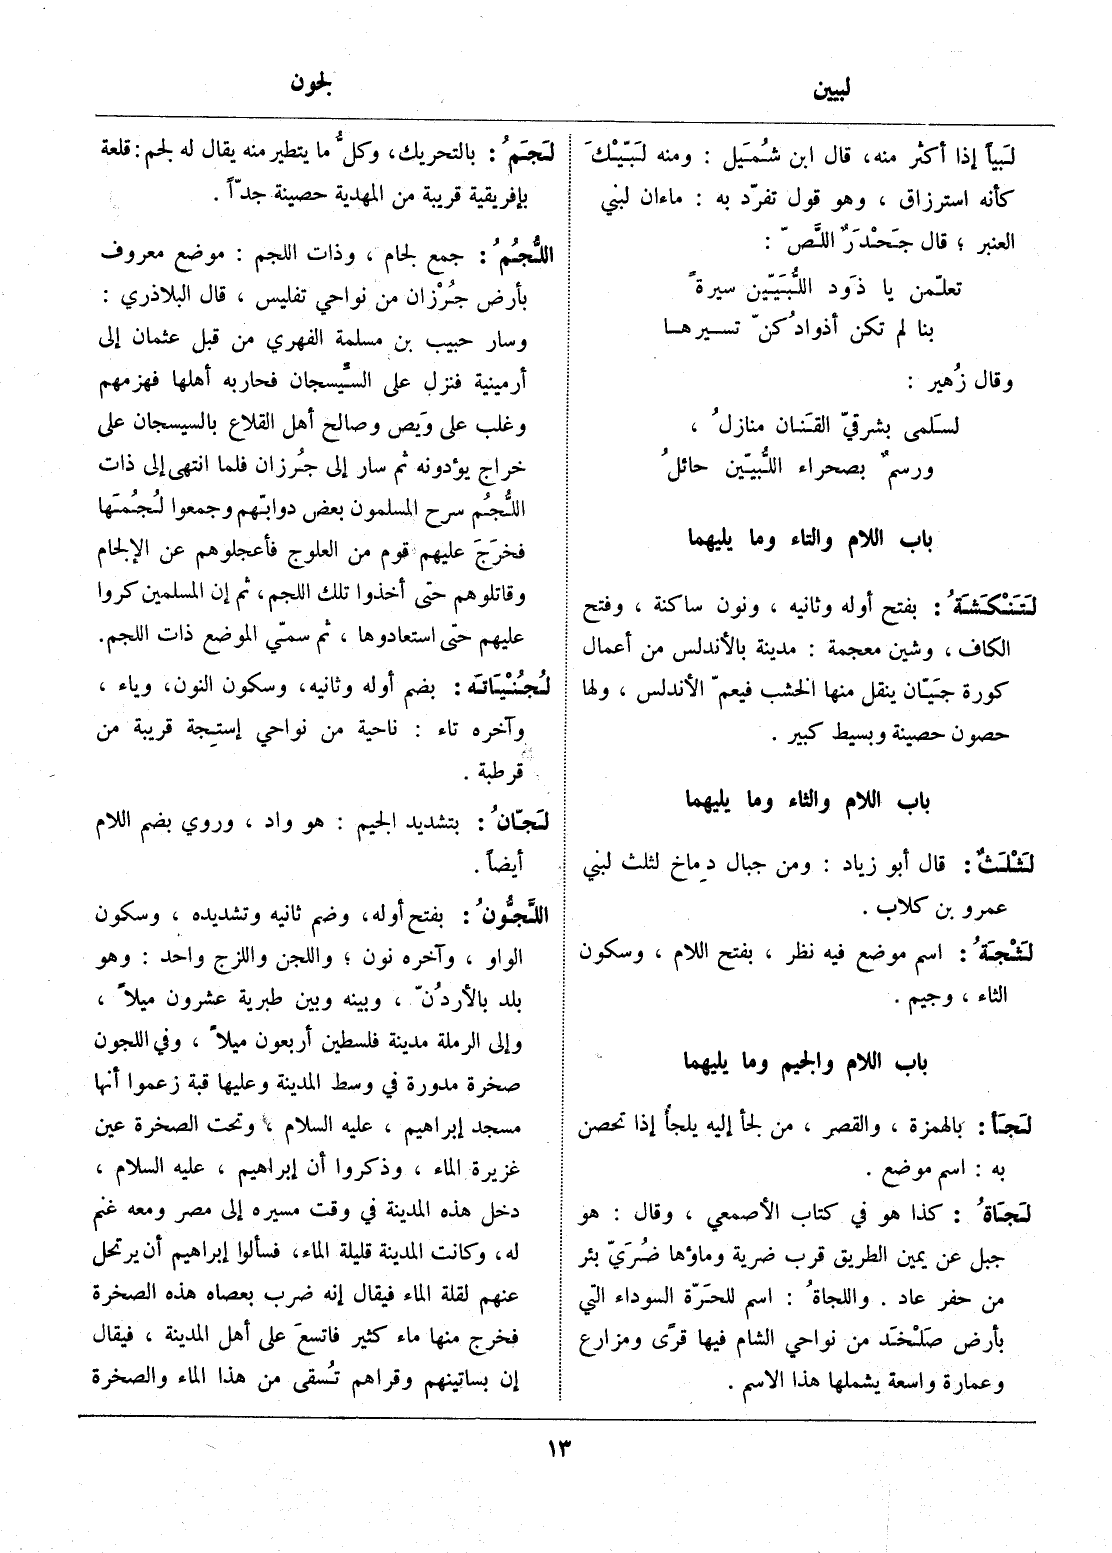 لبيين
لجون
لَبياً إذا أكثر منه، قال ابن شُمَيل : ومنه لَبّيْكَ
كأنه استرزاق ، وهو قول تفرّد به : ماءان لبني
العنبر ؛ قال جَحْدَرٌ اللَّصّ :
تعلّمن يا ذَود اللُّبَيّين سيرةً
بنا لم تكن أذوادُكنّ تسيرها
وقال زُهير :
لسَلمى بشرقيّ القَنان منازلُ ،
ورسمٌ بصحراء اللُّبيّين حائلُ
باب اللام والتاء وما يليهما
لَتَنْكَشَةُ : بفتح أوله وثانيه ، ونون ساكنة ، وفتح
الكاف ، وشين معجمة : مدينة بالأندلس من أعمال
كورة جَيّان ينقل منها الخشب فيعمّ الأندلس ، ولها
حصون حصينة وبسيط كبير .
باب اللام والثاء وما يليهما
لَثْلَثٌ : قال أبو زياد : ومن جبال دماخ لثلث لبني
عمرو بن كلاب .
لَثْجَةُ : اسم موضع فيه نظر ، بفتح اللام ، وسكون
الثاء ، وجيم .
باب اللام والجيم وما يليهما
لَجَأ : بالهمزة ، والقصر ، من لجأ إليه يلجأُ إذا تحصن
به : اسم موضع .
لَجَاةُ : كذا هو في كتاب الأصمعي ، وقال : هو
جبل عن يمين الطريق قرب ضرية وماؤها ضُرَيّ بئر
من حفر عاد . واللجاةُ : اسم للحَرّة السوداء التي
بأرض صَلْخَد من نواحي الشام فيها قرًى ومزارع
وعمارة واسعة يشملها هذا الاسم .
لَجَمُ : بالتحريك، وكلُّ ما يتطير منه يقال له لجم : قلعة
بإفريقية قريبة من المهدية حصينة جدّاً .
اللُّجُمُ : جمع لجام ، وذات اللجم : موضع معروف
بأرض جُرْزان من نواحي تفليس ، قال البلاذري :
وسار حبيب بن مسلمة الفهري من قبل عثمان إلى
أرمينية فنزل على السِّيسجان فحاربه أهلها فهزمهم
وغلب على وَيص وصالح أهل القلاع بالسيسجان على
خراج يؤدونه ثم سار إلى جُرزان فلما انتهى إلى ذات
اللُّجُم سرح المسلمون بعض دوابّهم وجمعوا لُجُمَها
فخرَجَ عليهم قوم من العلوج فأعجلوهم عن الإلجام
وقاتلوهم حتى أخذوا تلك اللجم، ثم إن المسلمين كروا
عليهم حتى استعادوها ، ثم سمّي الموضع ذات اللجم.
لُجُنْيَاتَه : بضم أوله وثانيه، وسكون النون، وياء ،
وآخره تاء : ناحية من نواحي إستِجة قريبة من
قرطبة .
لَجّانُ : بتشديد الجيم : هو واد ، وروي بضم اللام
أيضاً .
اللَّجُّونُ : بفتح أوله، وضم ثانيه وتشديده ، وسكون
الواو ، وآخره نون ؛ واللجن واللزج واحد : وهو
بلد بالأردُنّ ، وبينه وبين طبرية عشرون ميلاً ،
وإلى الرملة مدينة فلسطين أربعون ميلاً ، وفي اللجون
صخرة مدورة في وسط المدينة وعليها قبة زعموا أنها
مسجد إبراهيم ، عليه السلام ، وتحت الصخرة عين
غزيرة الماء ، وذكروا أن إبراهيم ، عليه السلام ،
دخل هذه المدينة في وقت مسيره إلى مصر ومعه غنم
له، وكانت المدينة قليلة الماء، فسألوا إبراهيم أن يرتحل
عنهم لقلة الماء فيقال إنه ضرب بعصاه هذه الصخرة
فخرج منها ماء كثير فاتسعَ على أهل المدينة ، فيقال
إن بساتينهم وقراهم تُسقى من هذا الماء والصخرة
١٣